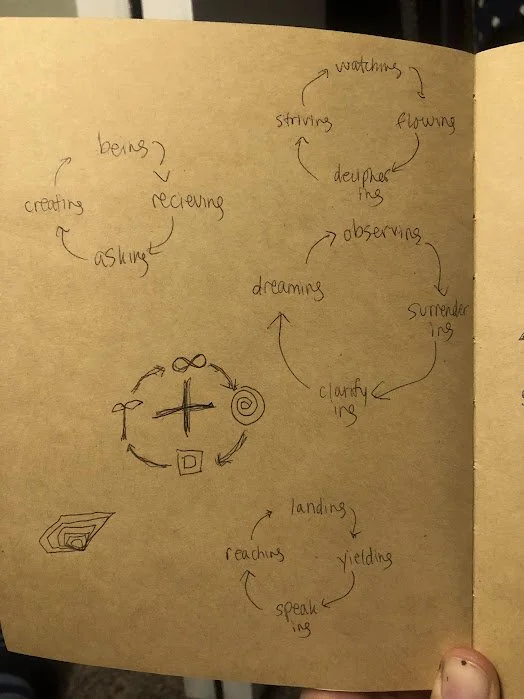 watching
striving
flowing
decipher
ing
being
creating
recieving
asking
observing
dreaming
surrender
ing
clarify
ing
∞
D
landing
reaching
yielding
speak
ing